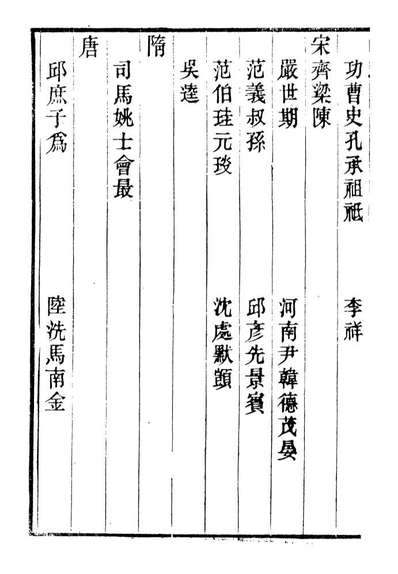 功曹史孔承祖祗　李祥
宋齊梁陳
嚴世期　河南尹韓德茂晏
范義叔孫　邱彥先景賓
范伯珪元琰　沈處默顗
吳逵
隋
司馬姚士會最
唐
邱庶子為　陸洗馬南金